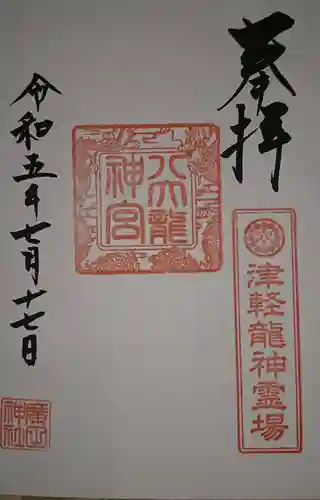 奉拝
津軽龍神霊場
八大龍
神宮
令和五年七月十七日
神社